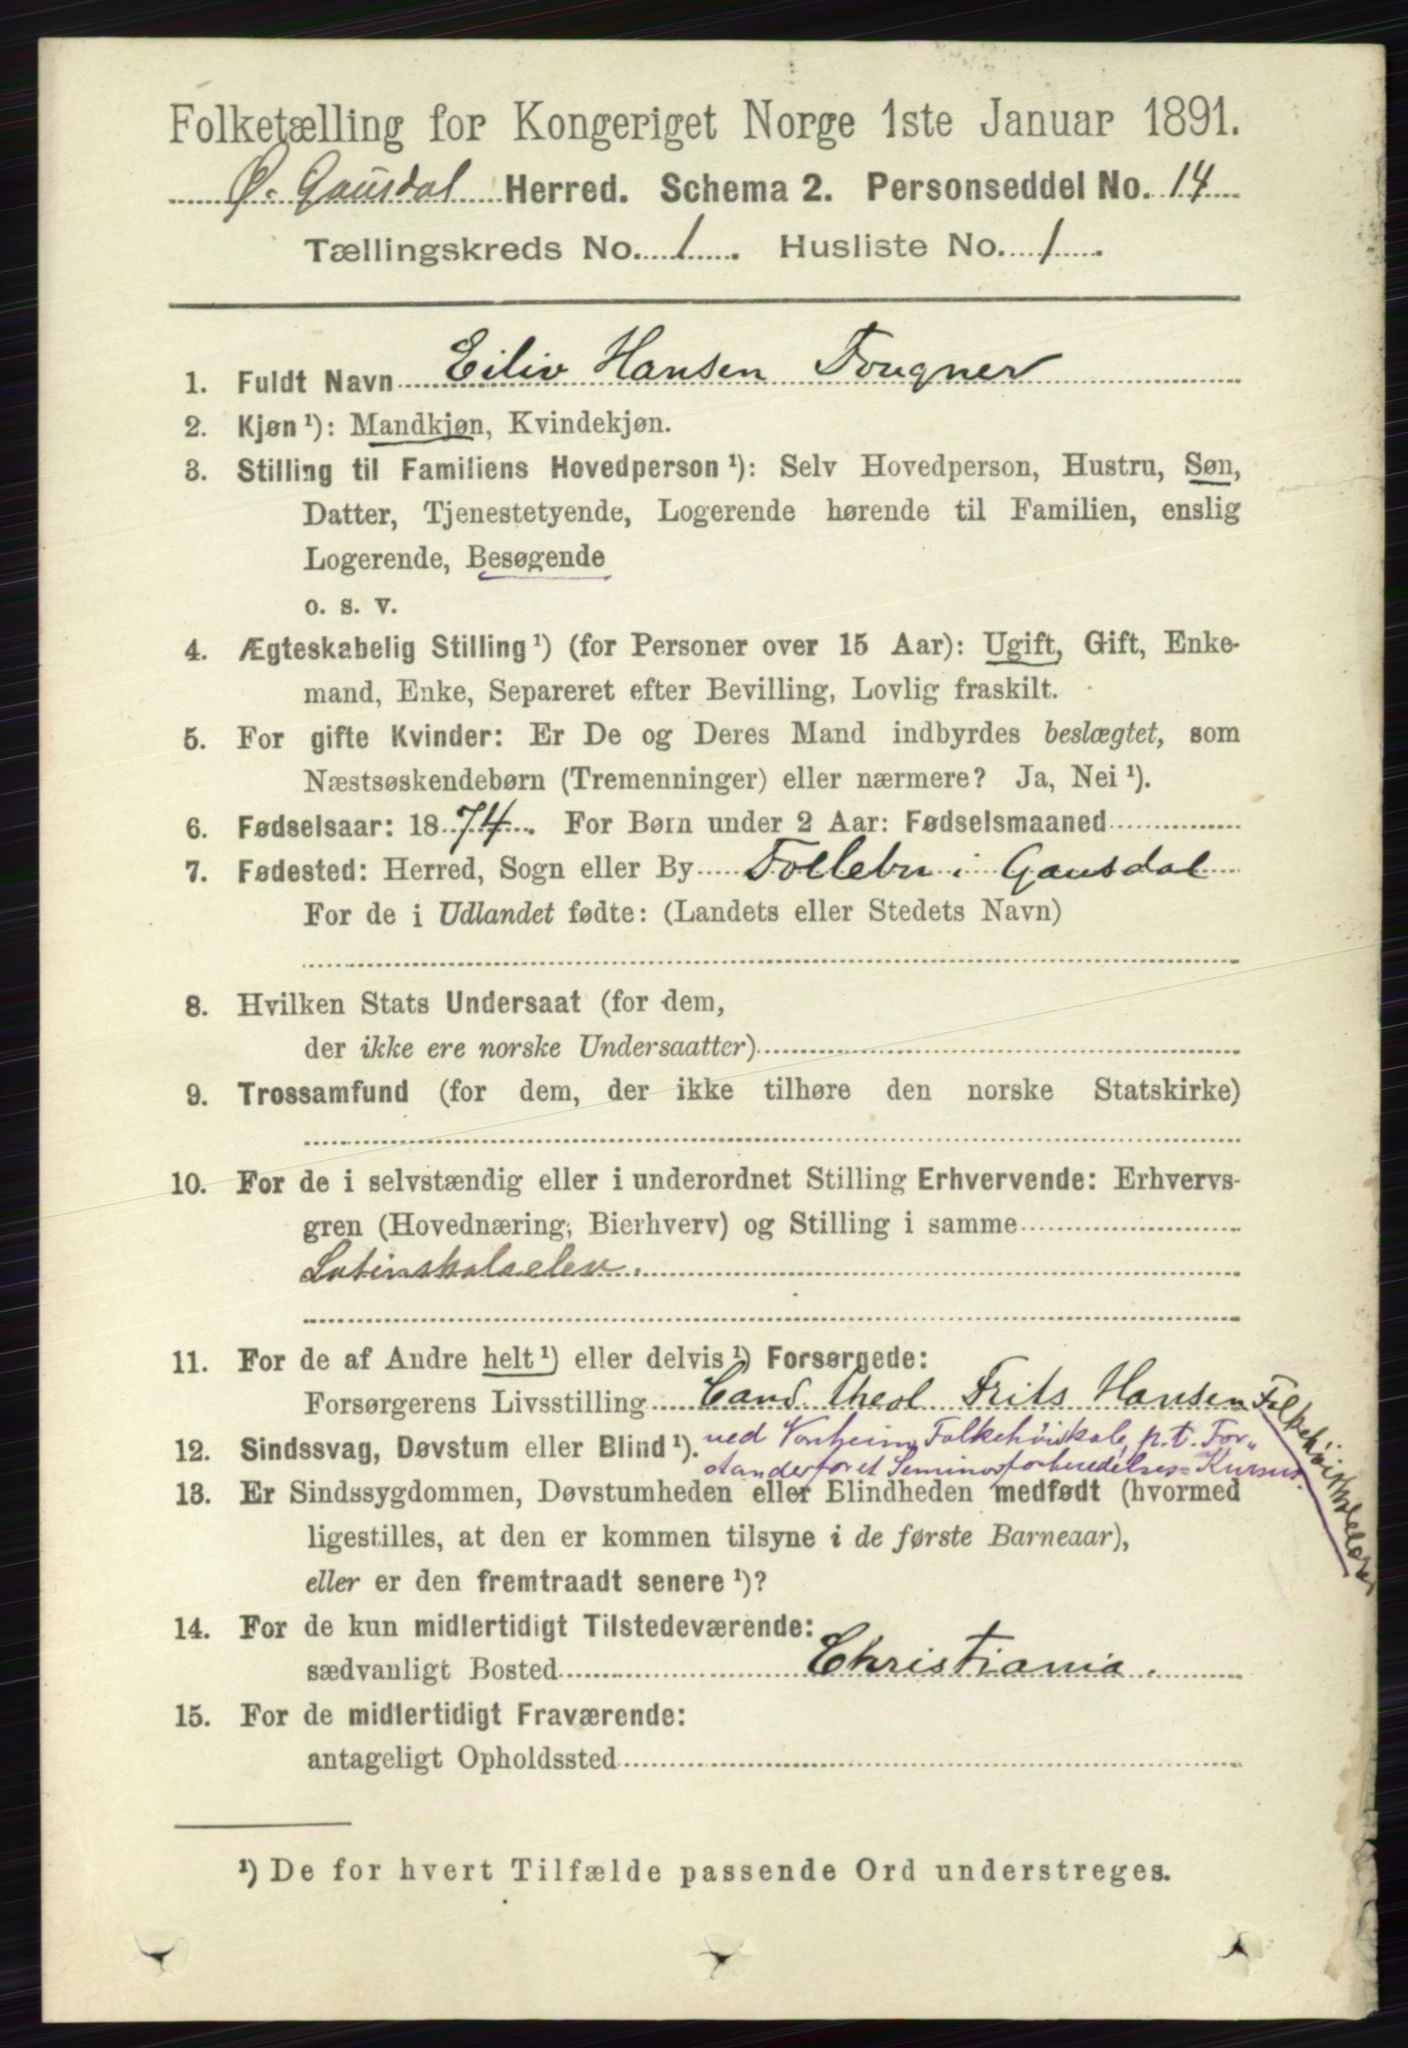 Folketælling for Kongeriget Norge 1ste Januar 1891.
Ø. Gausdal Herred. Schema 2. Personseddel No. 14
Tællingskreds No. 1. Husliste No. 1.
1. Fuldt Navn Eiliv Hansen Fougner
2. Kjøn ¹): Mandkjøn, Kvindekjøn.
3. Stilling til Familiens Hovedperson ¹): Selv Hovedperson, Hustru, Søn,
Datter, Tjenestetyende, Logerende hørende til Familien, enslig
Logerende, Besøgende
o. s. v.
4. Ægteskabelig Stilling ¹) (for Personer over 15 Aar): Ugift, Gift, Enke-
mand, Enke, Separeret efter Bevilling, Lovlig fraskilt.
5. For gifte Kvinder: Er De og Deres Mand indbyrdes beslægtet, som
Næstsøskendebørn (Tremenninger) eller nærmere? Ja, Nei ¹).
6. Fødselsaar: 1874. For Børn under 2 Aar: Fødselsmaaned
7. Fødested: Herred, Sogn eller By Follebu i Gausdal
For de i Udlandet fødte: (Landets eller Stedets Navn)
8. Hvilken Stats Undersaat (for dem,
der ikke ere norske Undersaatter)
9. Trossamfund (for dem, der ikke tilhøre den norske Statskirke)
10. For de i selvstændig eller i underordnet Stilling Erhvervende: Erhvervs-
gren (Hovednæring, Bierhverv) og Stilling i samme
Latinskoleelev.
11. For de af Andre helt ¹) eller delvis ¹) Forsørgede:
Forsørgerens Livsstilling Cand. theol Frits Hansen Folkehøiskolelærer
ved Vonheim Folkehøiskole, p.t. For-
12. Sindssvag, Døvstum eller Blind ¹).
stander for et Seminarforberedelses-Kursus.
13. Er Sindssygdommen, Døvstumheden eller Blindheden medfødt (hvormed
ligestilles, at den er kommen tilsyne i de første Barneaar),
eller er den fremtraadt senere ¹)?
14. For de kun midlertidigt Tilstedeværende:
sædvanligt Bosted Christiania.
15. For de midlertidigt Fraværende:
antageligt Opholdssted
¹) De for hvert Tilfælde passende Ord understreges.